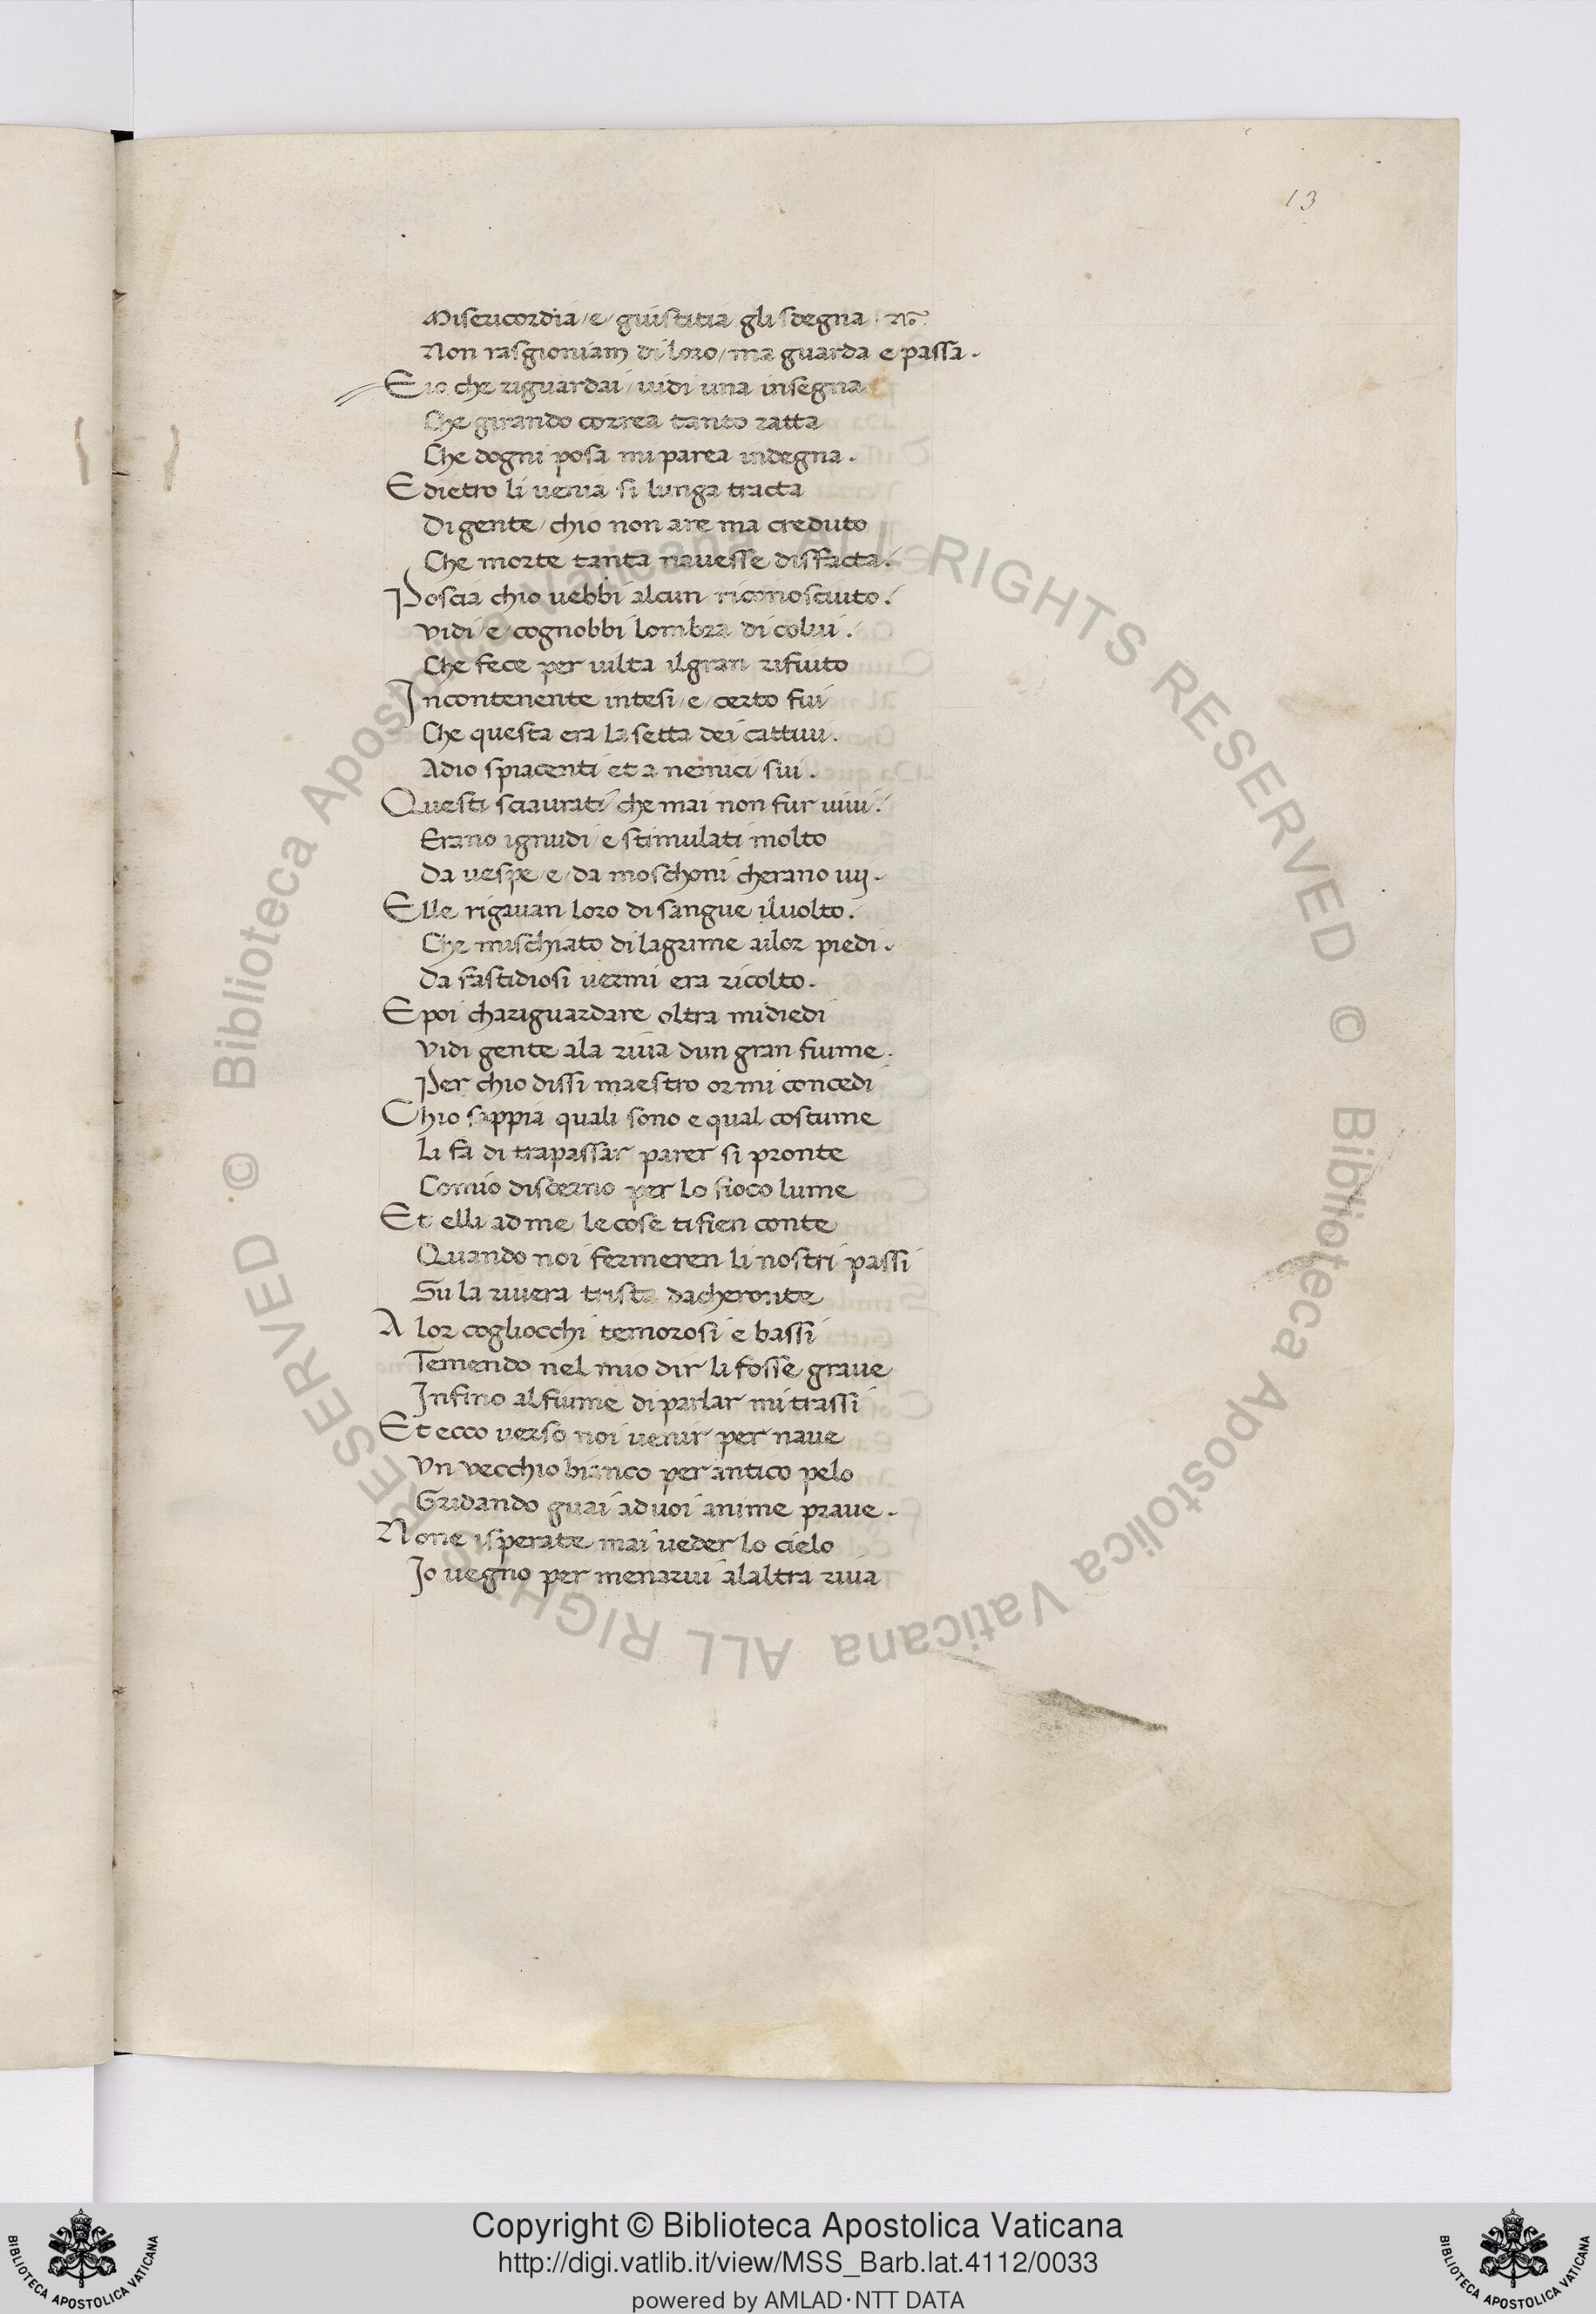 13
Misericordia/e/giustitia gli sdegna. No.
Non rasgioniam di loro/ma guarda e passa.
E io che riguardai/uidi una insegna
Che girando correa tanto ratta
Che dogni posa mi parea indegna.
E dietro li uenia si lunga tracta
Di gente/chio non are ma creduto
Che morte tanta nauesse disfacta.
Poscia chio uebbi alcun riconosciuto.
Vidi/e/cognobbi lombra di colui.
Che fece per uilta il gran rifiuto
Incontenente intesi/e/certo fui
Che questa era la setta dei cattiui.
A dio spiacenti et a nemici sui.
Questi sciaurati che mai non fur uiui.
Erano ignudi/e stimulati molto
Da uespe/e/da moschoni cherano iuj.
Elle rigauan loro di sangue il uolto.
Che mischiato di lagrime ai lor piedi.
Da fastidiosi uermi era ricolto.
E poi chariguardare oltra mi diedi
Vidi gente ala riua dun gran fiume.
Per chio dissi maestro or mi concedi
Chio sappia quali sono e qual costume
Li fa di trapassar parer si pronte
Comio discerno per lo fioco lume
Et elli ad me le cose ti fien conte
Quando noi fermeren li nostri passi
Su la riuera trista dacheronte
A lor cogliocchi temorosi e bassi
Temendo nel mio dir li fosse graue
Infino al fiume di parlar mi trassi
Et ecco verso noi uenir per naue
Vn vecchio bianco per antico pelo
Gridando guai ad uoi anime praue.
Non e isperate mai ueder lo cielo
Io uegno per menarui alaltra riua
© Biblioteca Apostolica Vaticana ALL RIGHTS RESERVED
© Biblioteca Apostolica Vaticana ALL RIGHTS RESERVED
Copyright © Biblioteca Apostolica Vaticana
http://digi.vatlib.it/view/MSS_Barb.lat.4112/0033
powered by AMLAD·NTT DATA
BIBLIOTECA APOSTOLICA VATICANA
BIBLIOTECA APOSTOLICA VATICANA